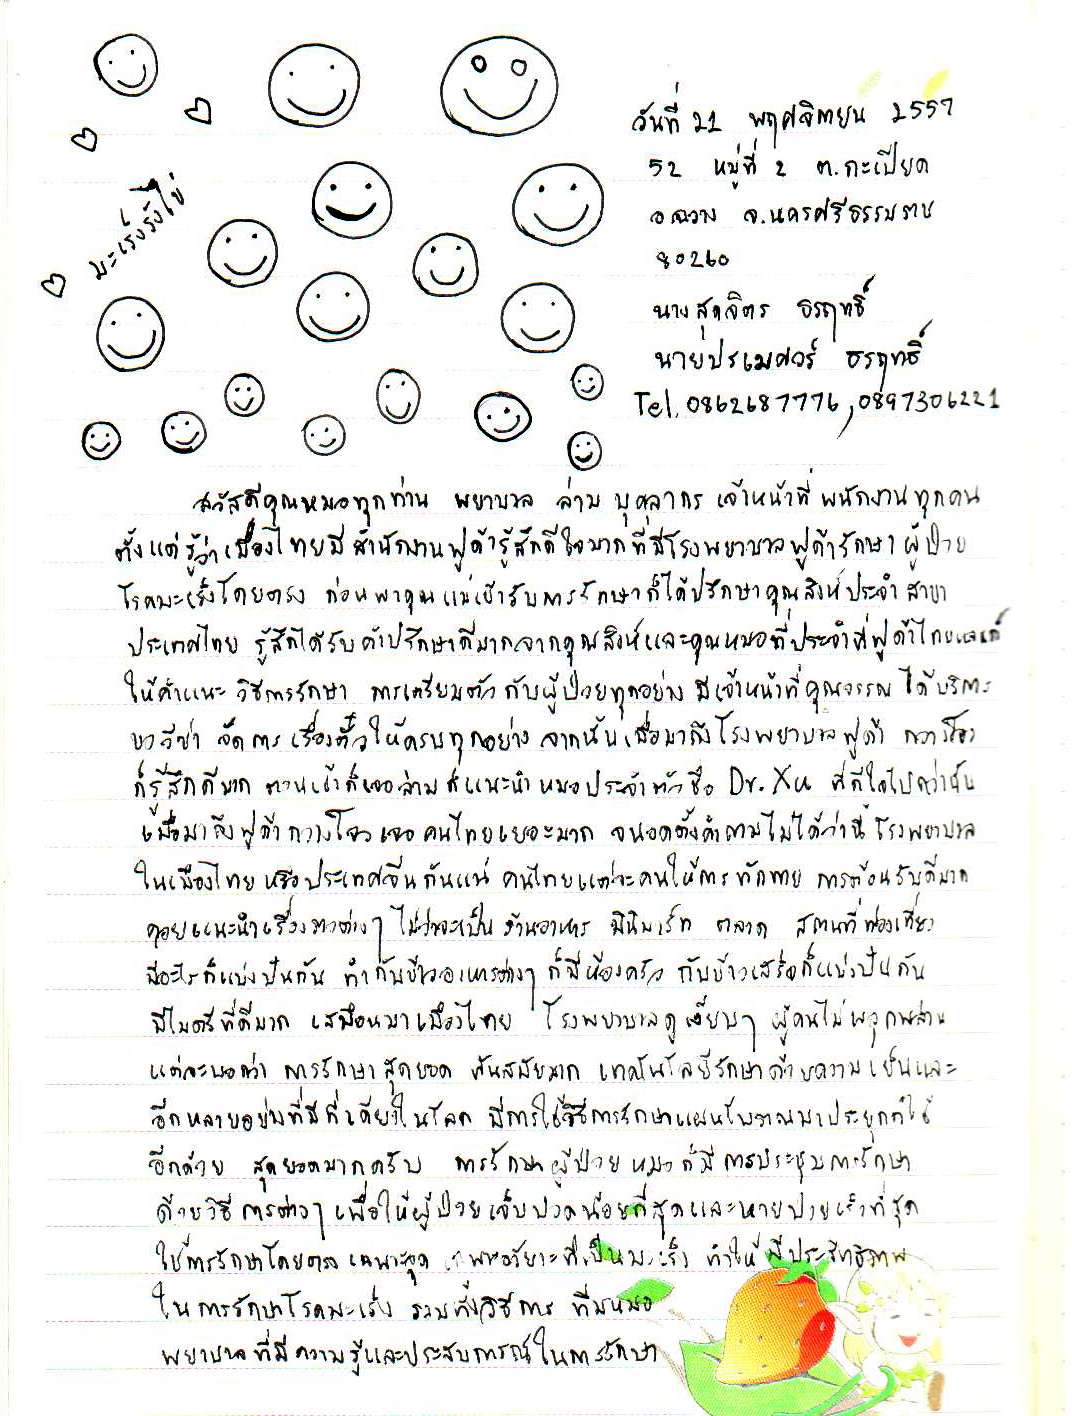 วันที่ 21 พฤศจิกายน 2557
52 หมู่ที่ 2 ต.กะเปียด
อ.ฉวาง จ.นครศรีธรรมราช
80260
นางสุดจิตร ธรฤทธิ์
นายปรเมศวร์ ธรฤทธิ์
Tel. 0862687776, 0897306221
มะเร็งรังไข่
สวัสดีคุณหมอทุกท่าน พยาบาล ล่าม บุคลากร เจ้าหน้าที่ พนักงานทุกคน
ตั้งแต่รู้ว่าเมืองไทยมีสำนักงานฟูด้ารู้สึกดีใจมากที่มีโรงพยาบาลฟูด้ารักษาผู้ป่วย
โรคมะเร็งโดยตรง ก่อนพาคุณแม่เข้ารับการรักษาก็ได้ปรึกษาคุณสิงห์ประจำสาขา
ประเทศไทย รู้สึกได้รับคำปรึกษาดีมากจากคุณสิงห์และคุณหมอที่ประจำที่ฟูด้าไทยแลนด์
ให้คำแนะ วิธีการรักษา การเตรียมตัว กับผู้ป่วยทุกอย่าง มีเจ้าหน้าที่คุณจรรณ ได้บริการ
ขอวีซ่า จัดการ เรื่องตั๋วให้ครบทุกอย่าง จากนั้นเมื่อมาถึงโรงพยาบาลฟูด้า กวางโจว
ก็รู้สึกดีมาก ตอนเข้าก็เจอล่ามก็แนะนำหมอประจำตัวชื่อ Dr. Xu ที่ดีใจไปกว่านั้น
เมื่อมาถึงฟูด้ากวางโจวเจอคนไทยเยอะมาก จนอดตั้งคำถามไม่ได้ว่านี้โรงพยาบาล
ในเมืองไทยหรือประเทศจีนกันแน่ คนไทยแต่ละคนให้การทักทาย การต้อนรับดีมาก
คอยแนะนำเรื่องราวต่างๆ ไม่ว่าจะเป็น ร้านอาหาร มินิมาร์ท ตลาด สถานที่ท่องเที่ยว
มีอะไรก็แบ่งปันกัน ทำกับข้าวอาหารต่างๆ ก็มีห้องครัว กับข้าวเสร็จก็แบ่งปันกัน
มีไมตรีที่ดีมาก เสมือนมาเมืองไทย โรงพยาบาลดูเงียบๆ ผู้คนไม่พลุกพล่าน
แต่จะบอกว่า การรักษาสุดยอด ทันสมัยมาก เทคโนโลยีรักษาด้วยความเย็นและ
อีกหลายอย่างที่มีที่เดียวในโลก มีการใช้วิธีการรักษาแผนโบราณมาประยุกต์ใช้
อีกด้วย สุดยอดมากครับ การรักษาผู้ป่วย หมอก็มีการประชุมการรักษา
ด้วยวิธีการต่างๆ เพื่อให้ผู้ป่วยเจ็บปวดน้อยที่สุดและหายป่วยเร็วที่สุด
ใช้การรักษาโดยตรง เฉพาะจุด เฉพาะอวัยวะที่เป็นมะเร็ง ทำให้มีประสิทธิภาพ
ในการรักษาโรคมะเร็ง รวมทั้งวิธีการ ทีมหมอ
พยาบาลที่มีความรู้และประสบการณ์ในการรักษา